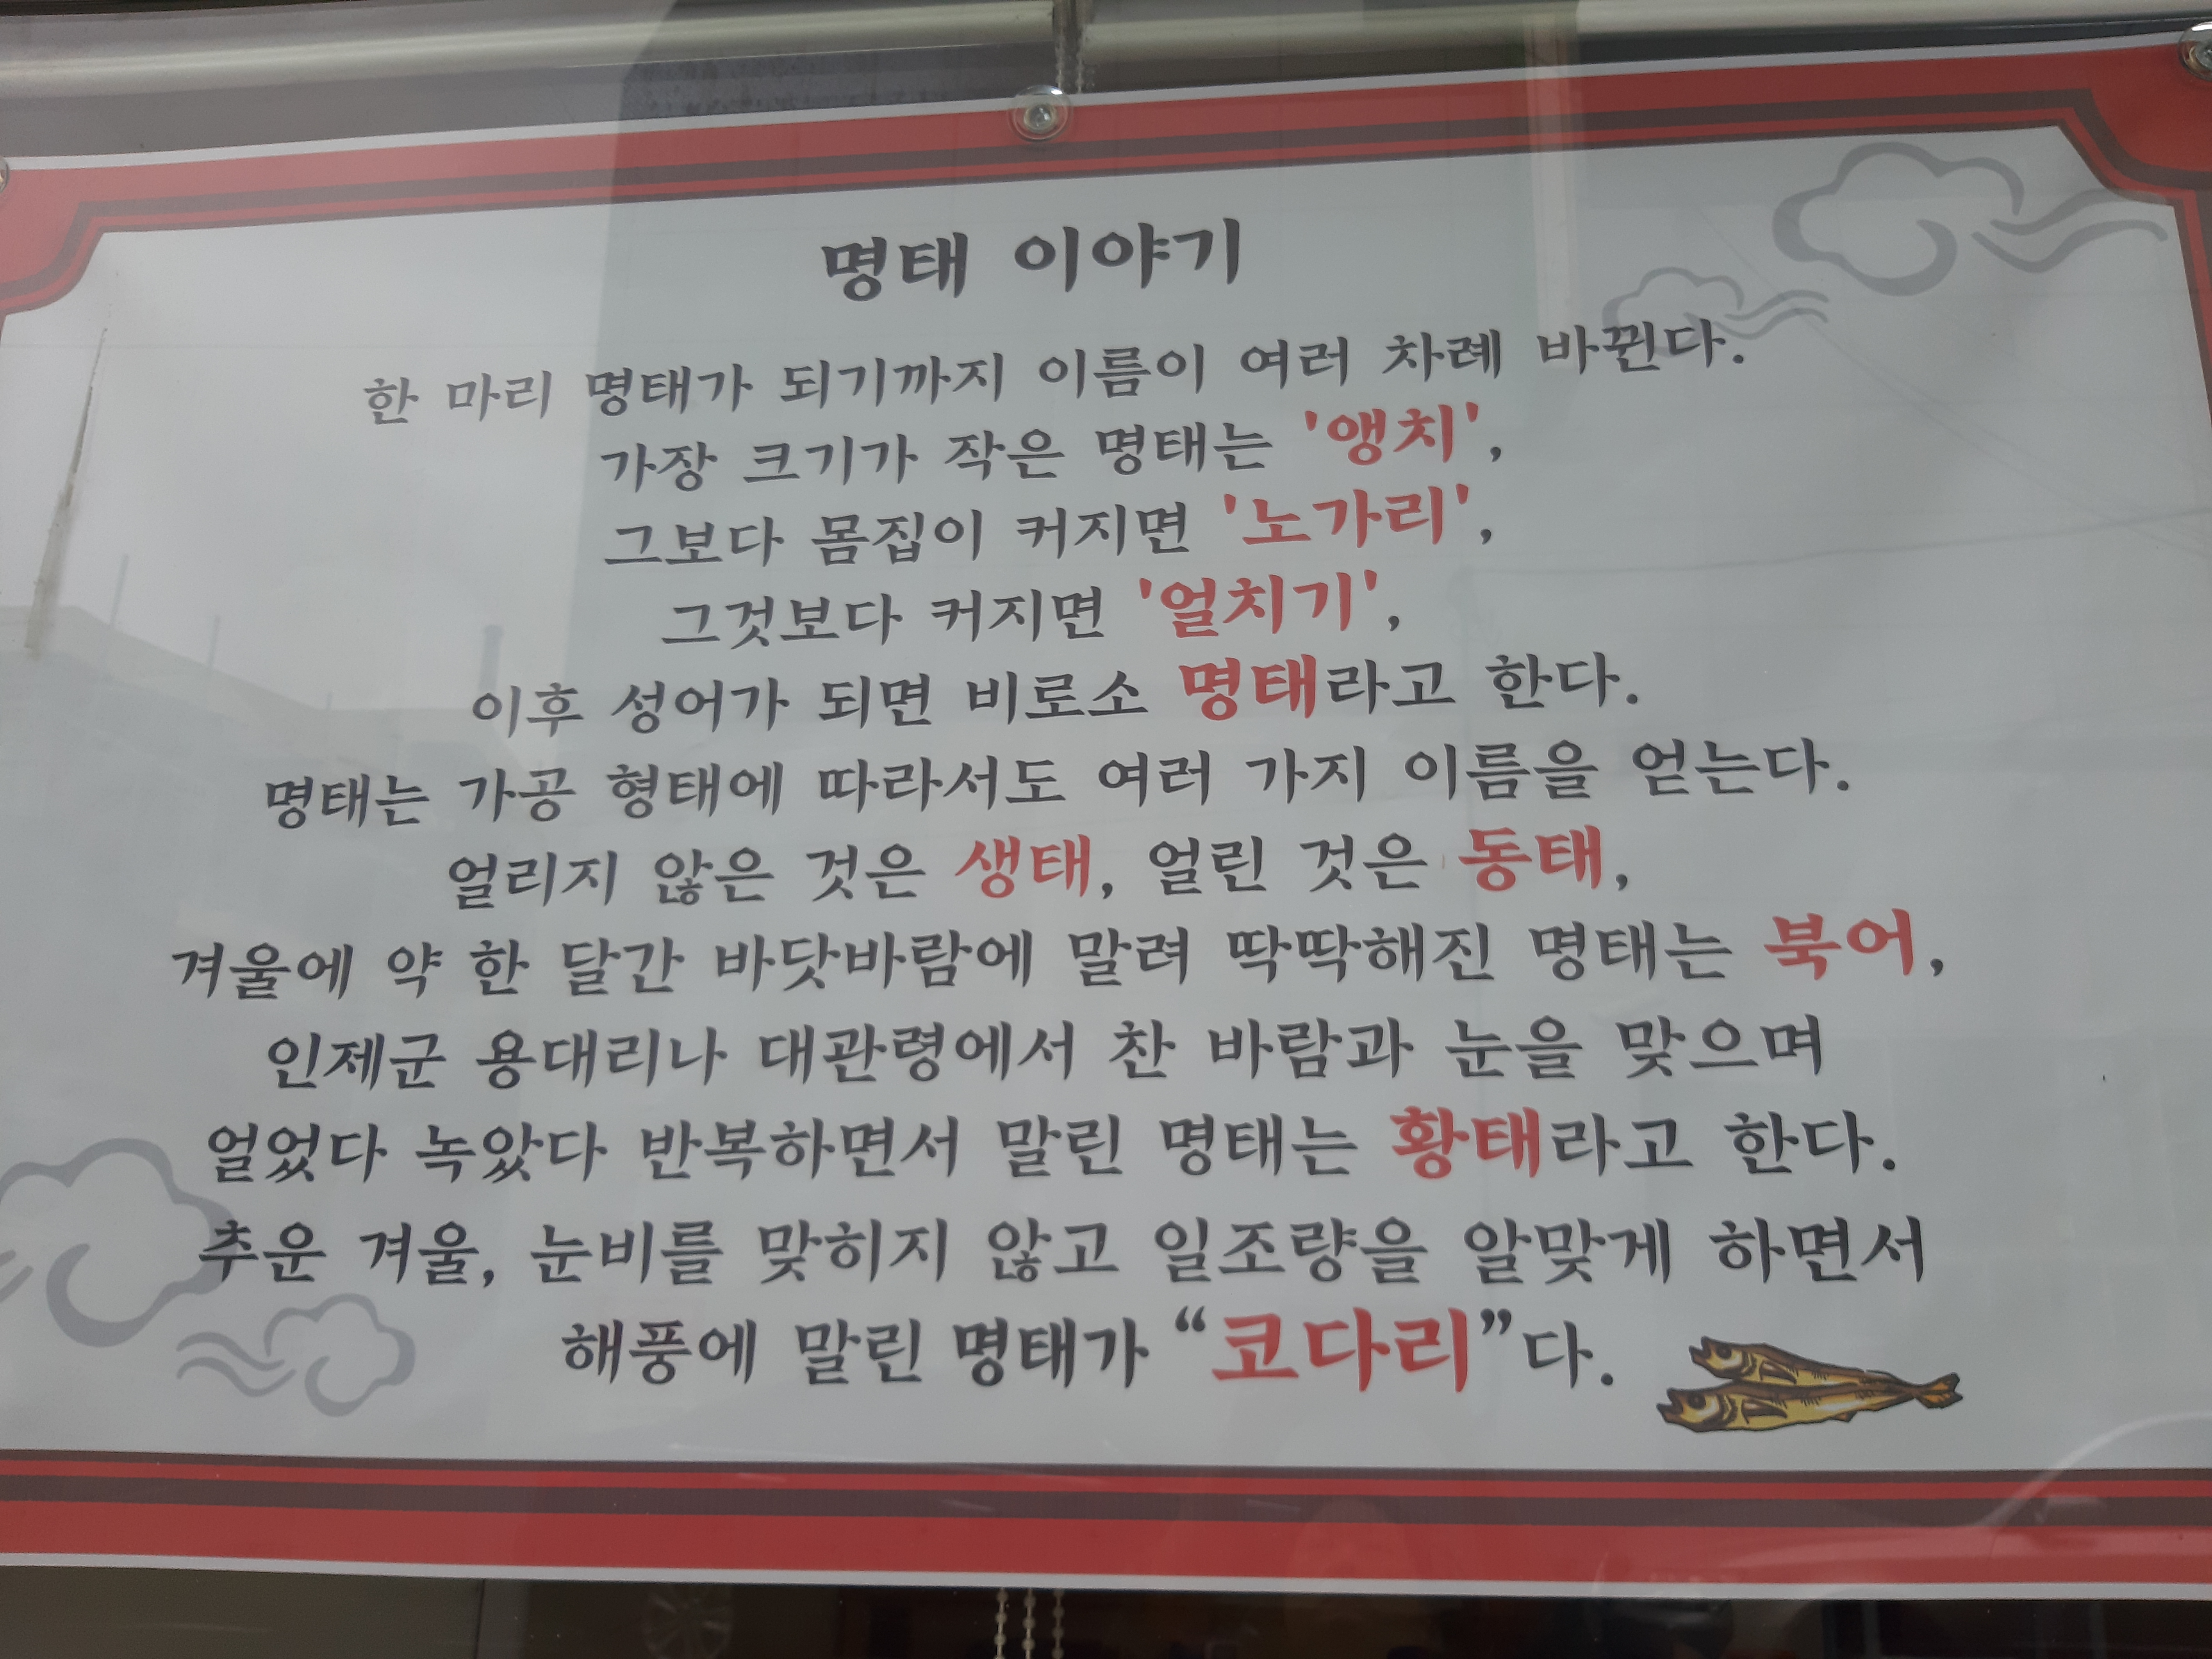 명태 이야기
한 마리 명태가 되기까지 이름이 여러 차례 바뀐다.
가장 크기가 작은 명태는 '앵치',
그보다 몸집이 커지면 '노가리',
그것보다 커지면 '얼치기',
이후 성어가 되면 비로소 명태라고 한다.
명태는 가공 형태에 따라서도 여러 가지 이름을 얻는다.
얼리지 않은 것은 생태, 얼린 것은 동태,
겨울에 약 한 달간 바닷바람에 말려 딱딱해진 명태는 북어,
인제군 용대리나 대관령에서 찬 바람과 눈을 맞으며
얼었다 녹았다 반복하면서 말린 명태는 황태라고 한다.
추운 겨울, 눈비를 맞히지 않고 일조량을 알맞게 하면서
해풍에 말린 명태가 “코다리”다.